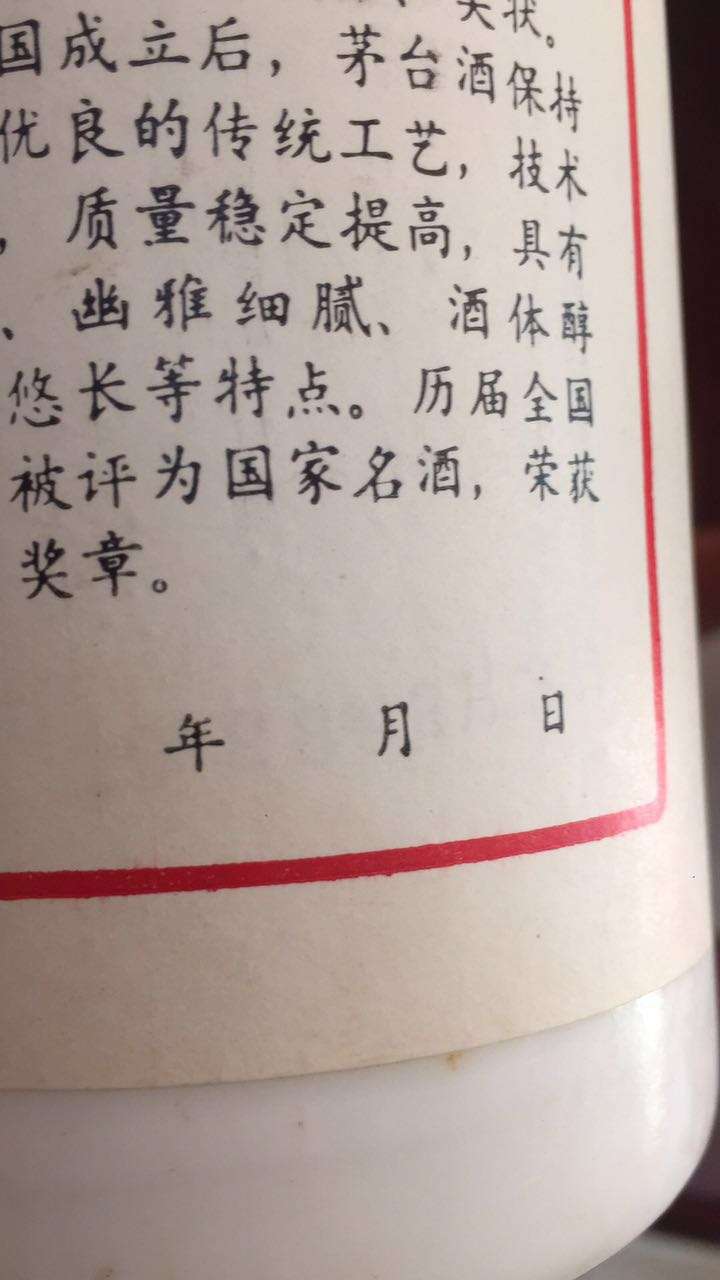 国成立后，茅台酒保持
优良的传统工艺，技术
，质量稳定提高，具有
、幽雅细腻、酒体醇
悠长等特点。历届全国
被评为国家名酒，荣获
奖章。
年 月 日